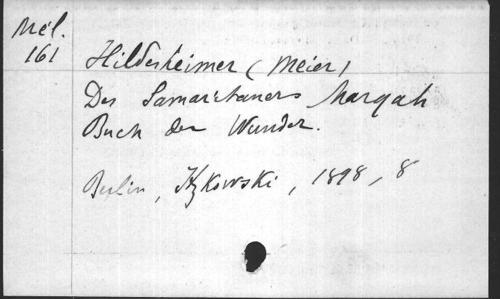 Mél.
161
Hildesheimer (Meier)
Des Samaritaners Marqah
Buch der Wunder.
Berlin, Itzkowski, 1898, 8